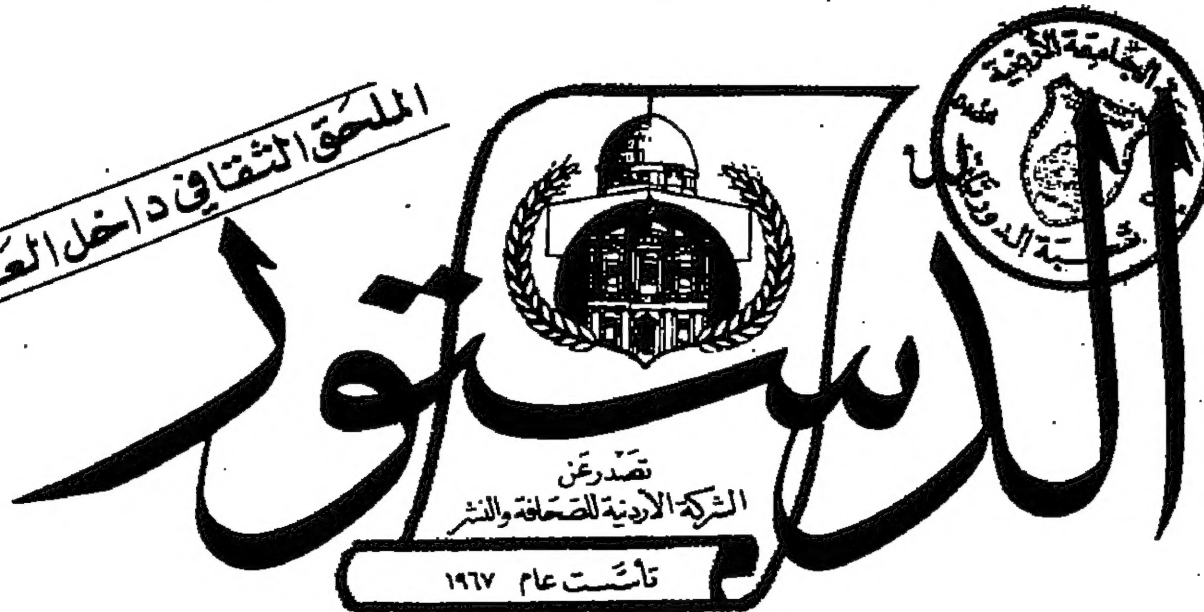 الملحق الثقافي داخل
الجامعة الأردنية
شعبة الدوريات
الدستور
تصدر عن
الشركة الأردنية للصحافة والنشر
تأسست عام ١٩٦٧